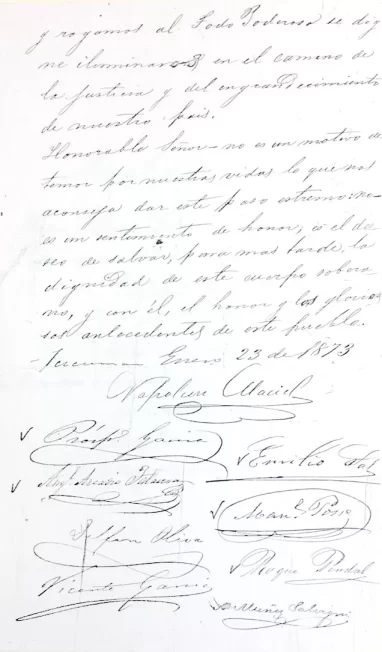 y rogamos al Todo Poderoso se dig
ne iluminarnos en el camino de
la justicia y del engrandecimiento
de nuestro pais.
Honorable Señor – no es un motivo de
temor por nuestras vidas lo que nos
aconseja dar este paso estremo: no –
es un sentimiento de honor, es el de
seo de salvar, para mas tarde, la
dignidad de este cuerpo sobera
no, y con él, el honor y los glorio
sos antecedentes de este pueblo.
– Tucuman Enero 23 de 1873
Napoleon Maciel
Prósp.º Garcia
Emilio Sal
Man.l Posse
Oliva
Roque Pondal
Vicente Garcia
Muñoz